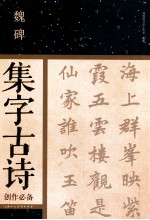 魏碑
集字古诗
创作必备
海上群峯映紫
霞五雲楼觀是
仙家誰吹玉笛